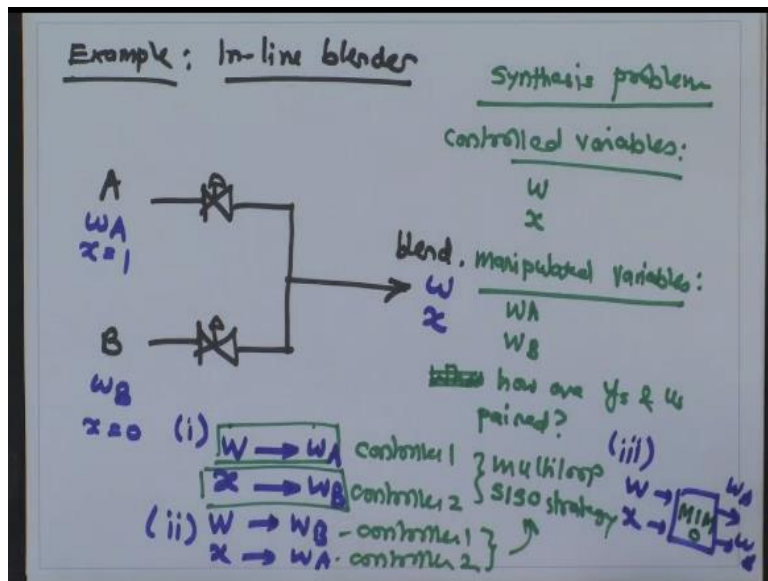 Example: In-line blender
A
WA
x=1
B
WB
x=0
blend.
W
x
Synthesis problem
Controlled variables:
W
x
Manipulated Variables:
WA
WB
how are ys & us
paired?
(i) W → WA controller 1
x → WB controller 2
} multiloop
SISO strategy
(ii) W → WB - controller 1
x → WA - controller 2 }
(iii)
W →
x →
MIM
O
WA
WB